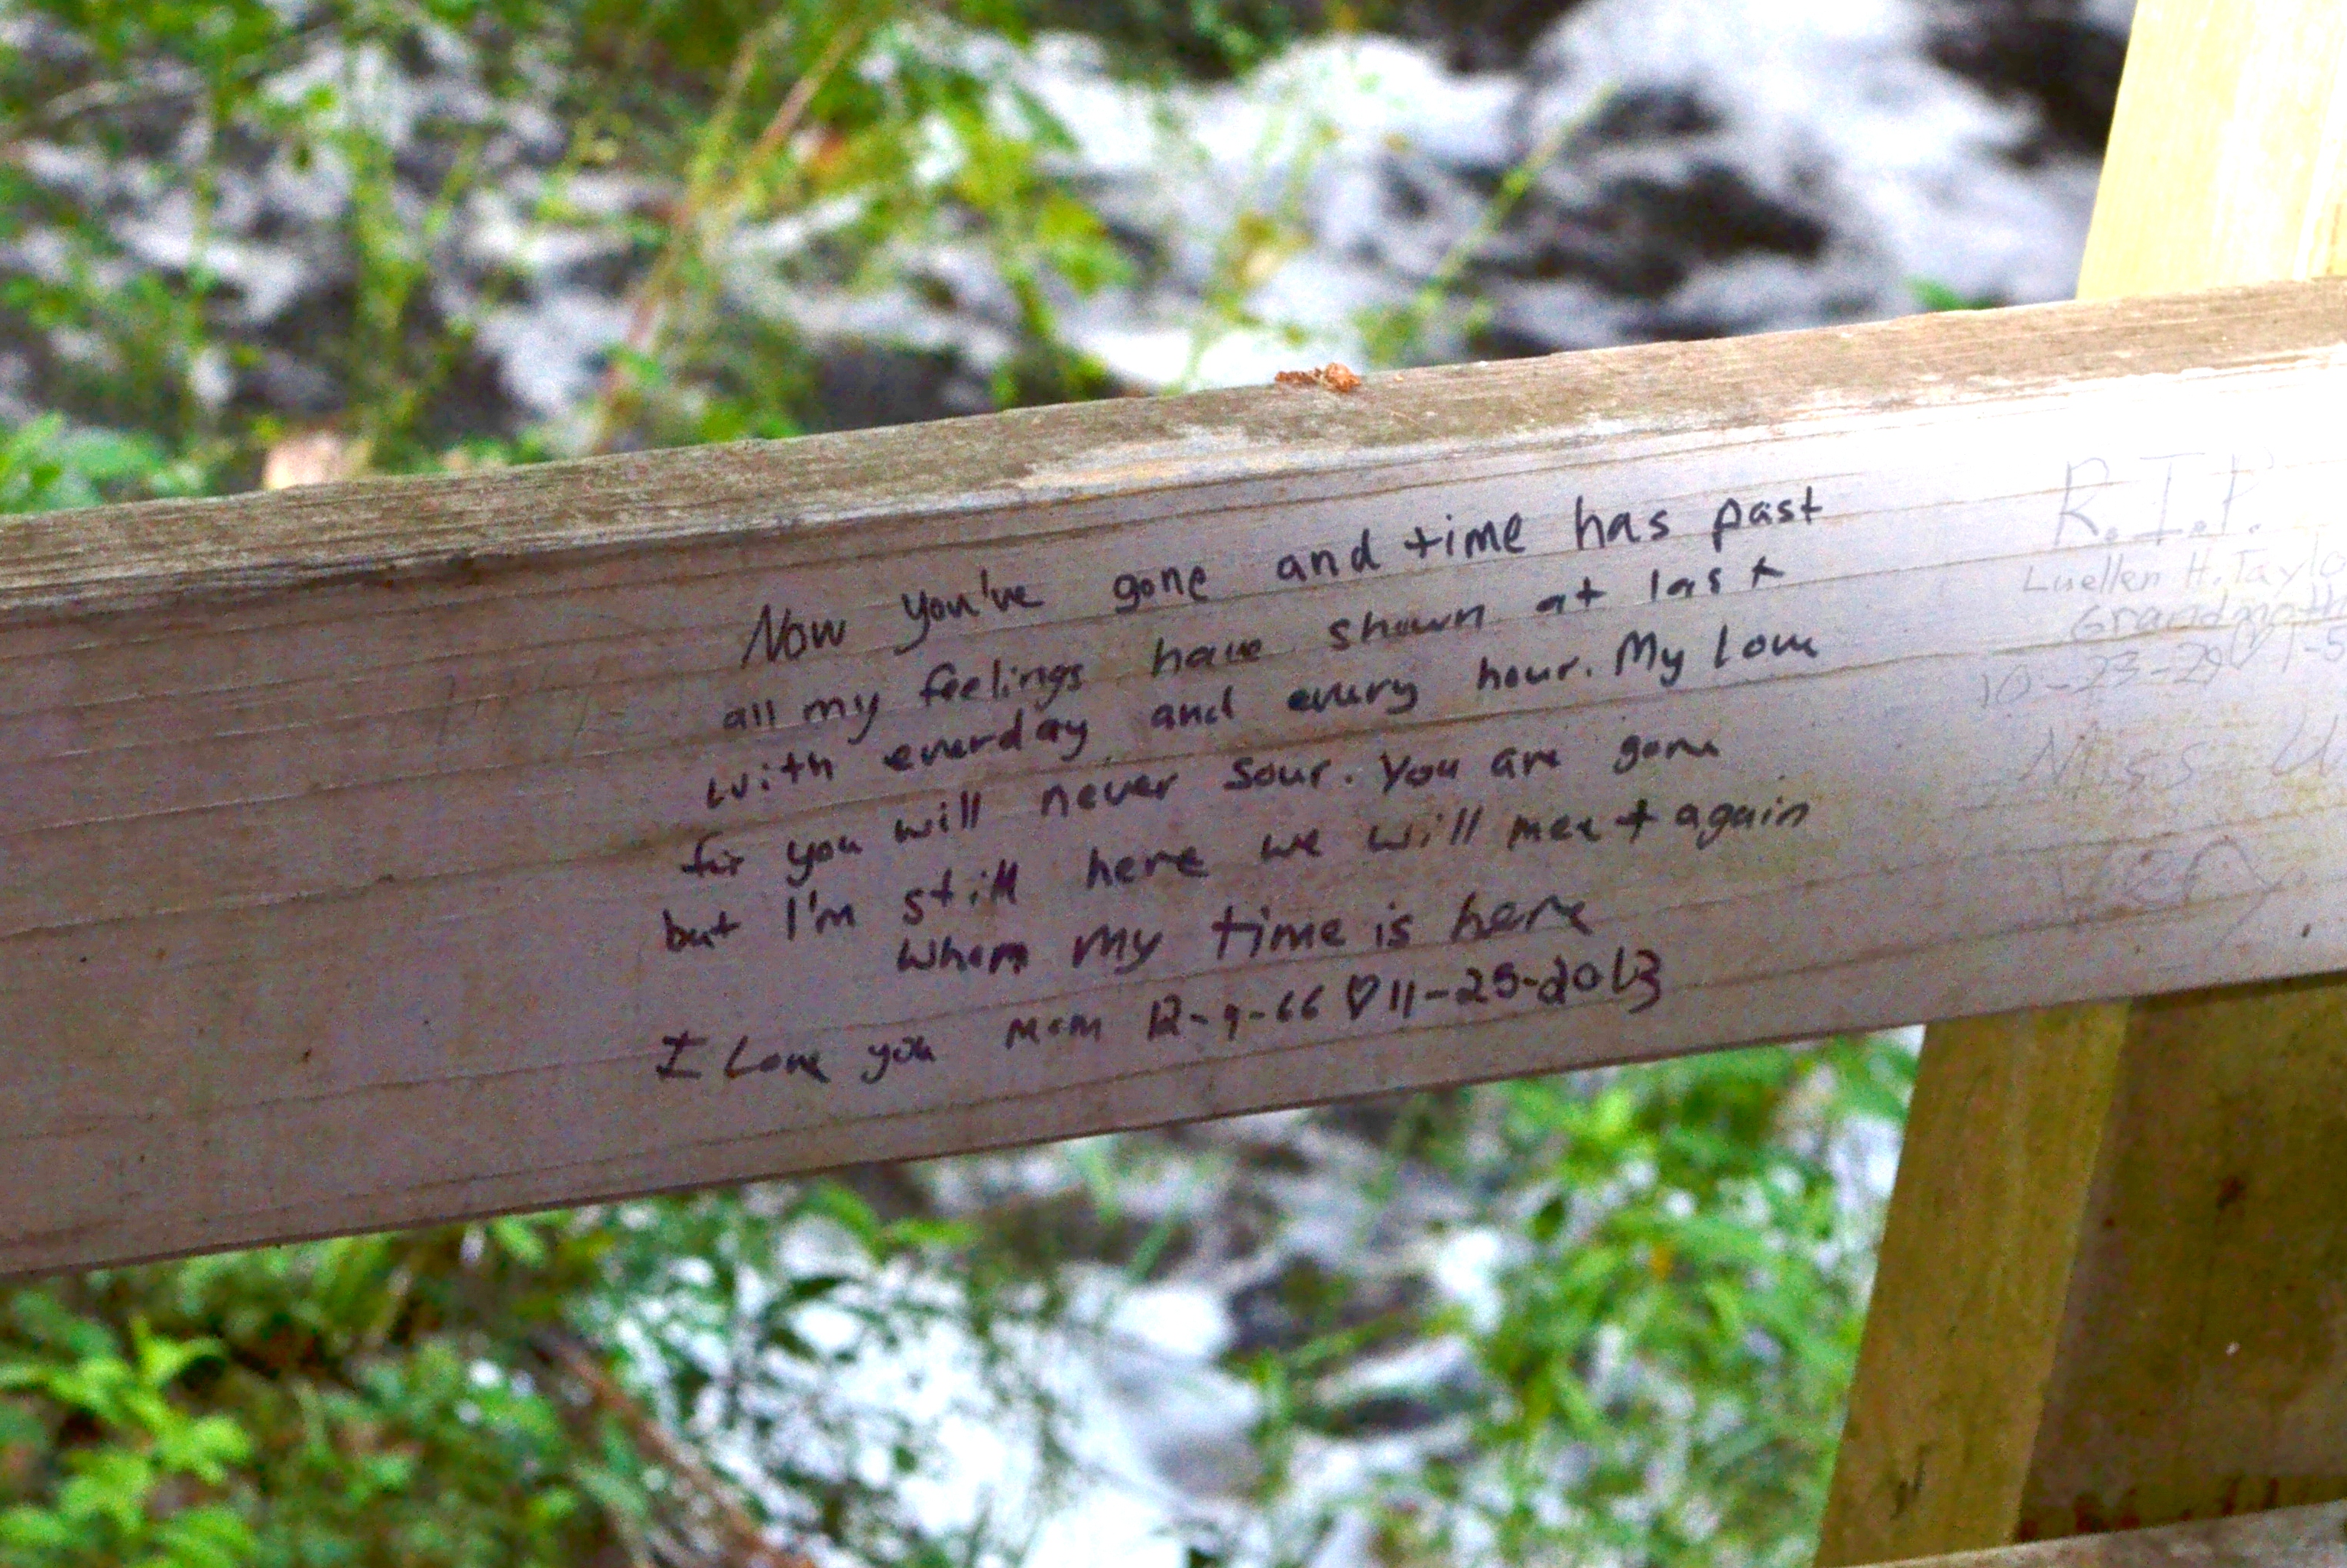 Now you've gone and time has past
all my feelings have shown at last
with everday and every hour. My love
for you will never sour. You are gone
but I'm still here we will meet again
when my time is here
I Love you Mom 12-9-66 ♡ 11-25-2013
R.I.P.
Luellen H. Taylo
Grandmoth
10-23-29 ♡ 1-5
Miss U